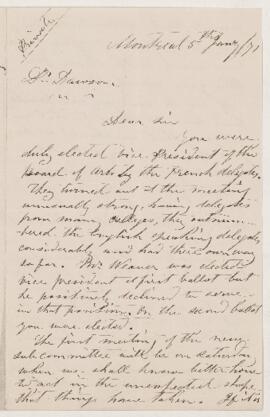 Private
Montreal 5th Jany /71
Dr Dawson
Dear Sir
You were
duly elected Vice President of the
Board of Arts by the French delegates.
They turned out at the meeting
unusually strong, having delegates
from many colleges, they outnum-
bered the English speaking delegates
considerably and had their own way
so far. Mr Weaver was elected
vice president at first ballot but
he positively declined to serve
in that position. On the second ballot
you were elected.
The first meeting of the new
sub committee will be on Saturday
when we shall know better how
to act in the unexpected shape
that things have taken.